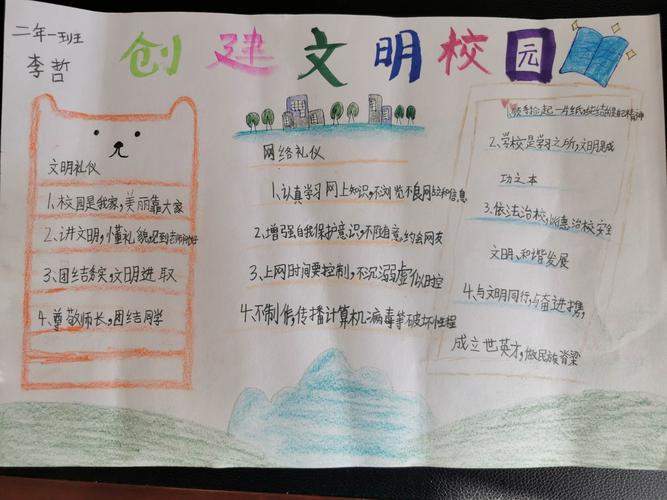 二年一班
李哲
创建文明校园
文明礼仪
1、校园是我家,美丽靠大家
2、讲文明,懂礼貌,见到老师问好
3、团结务实,文明进取
4、尊敬师长,团结同学
网络礼仪
1、认真学习网上知识,不浏览不良网站和信息
2、增强自我保护意识,不随意约会网友
3、上网时间要控制,不沉溺虚似时控
4、不制作,传播计算机病毒等破坏性程
顺手捡起一片纸,纯洁的是自己精神
2、学校是学习之所,文明是成
功之本
3、依法治校,以德治校安全
文明、和谐发展
4、与文明同行,与奋进携,
成立世英才,做民族脊梁